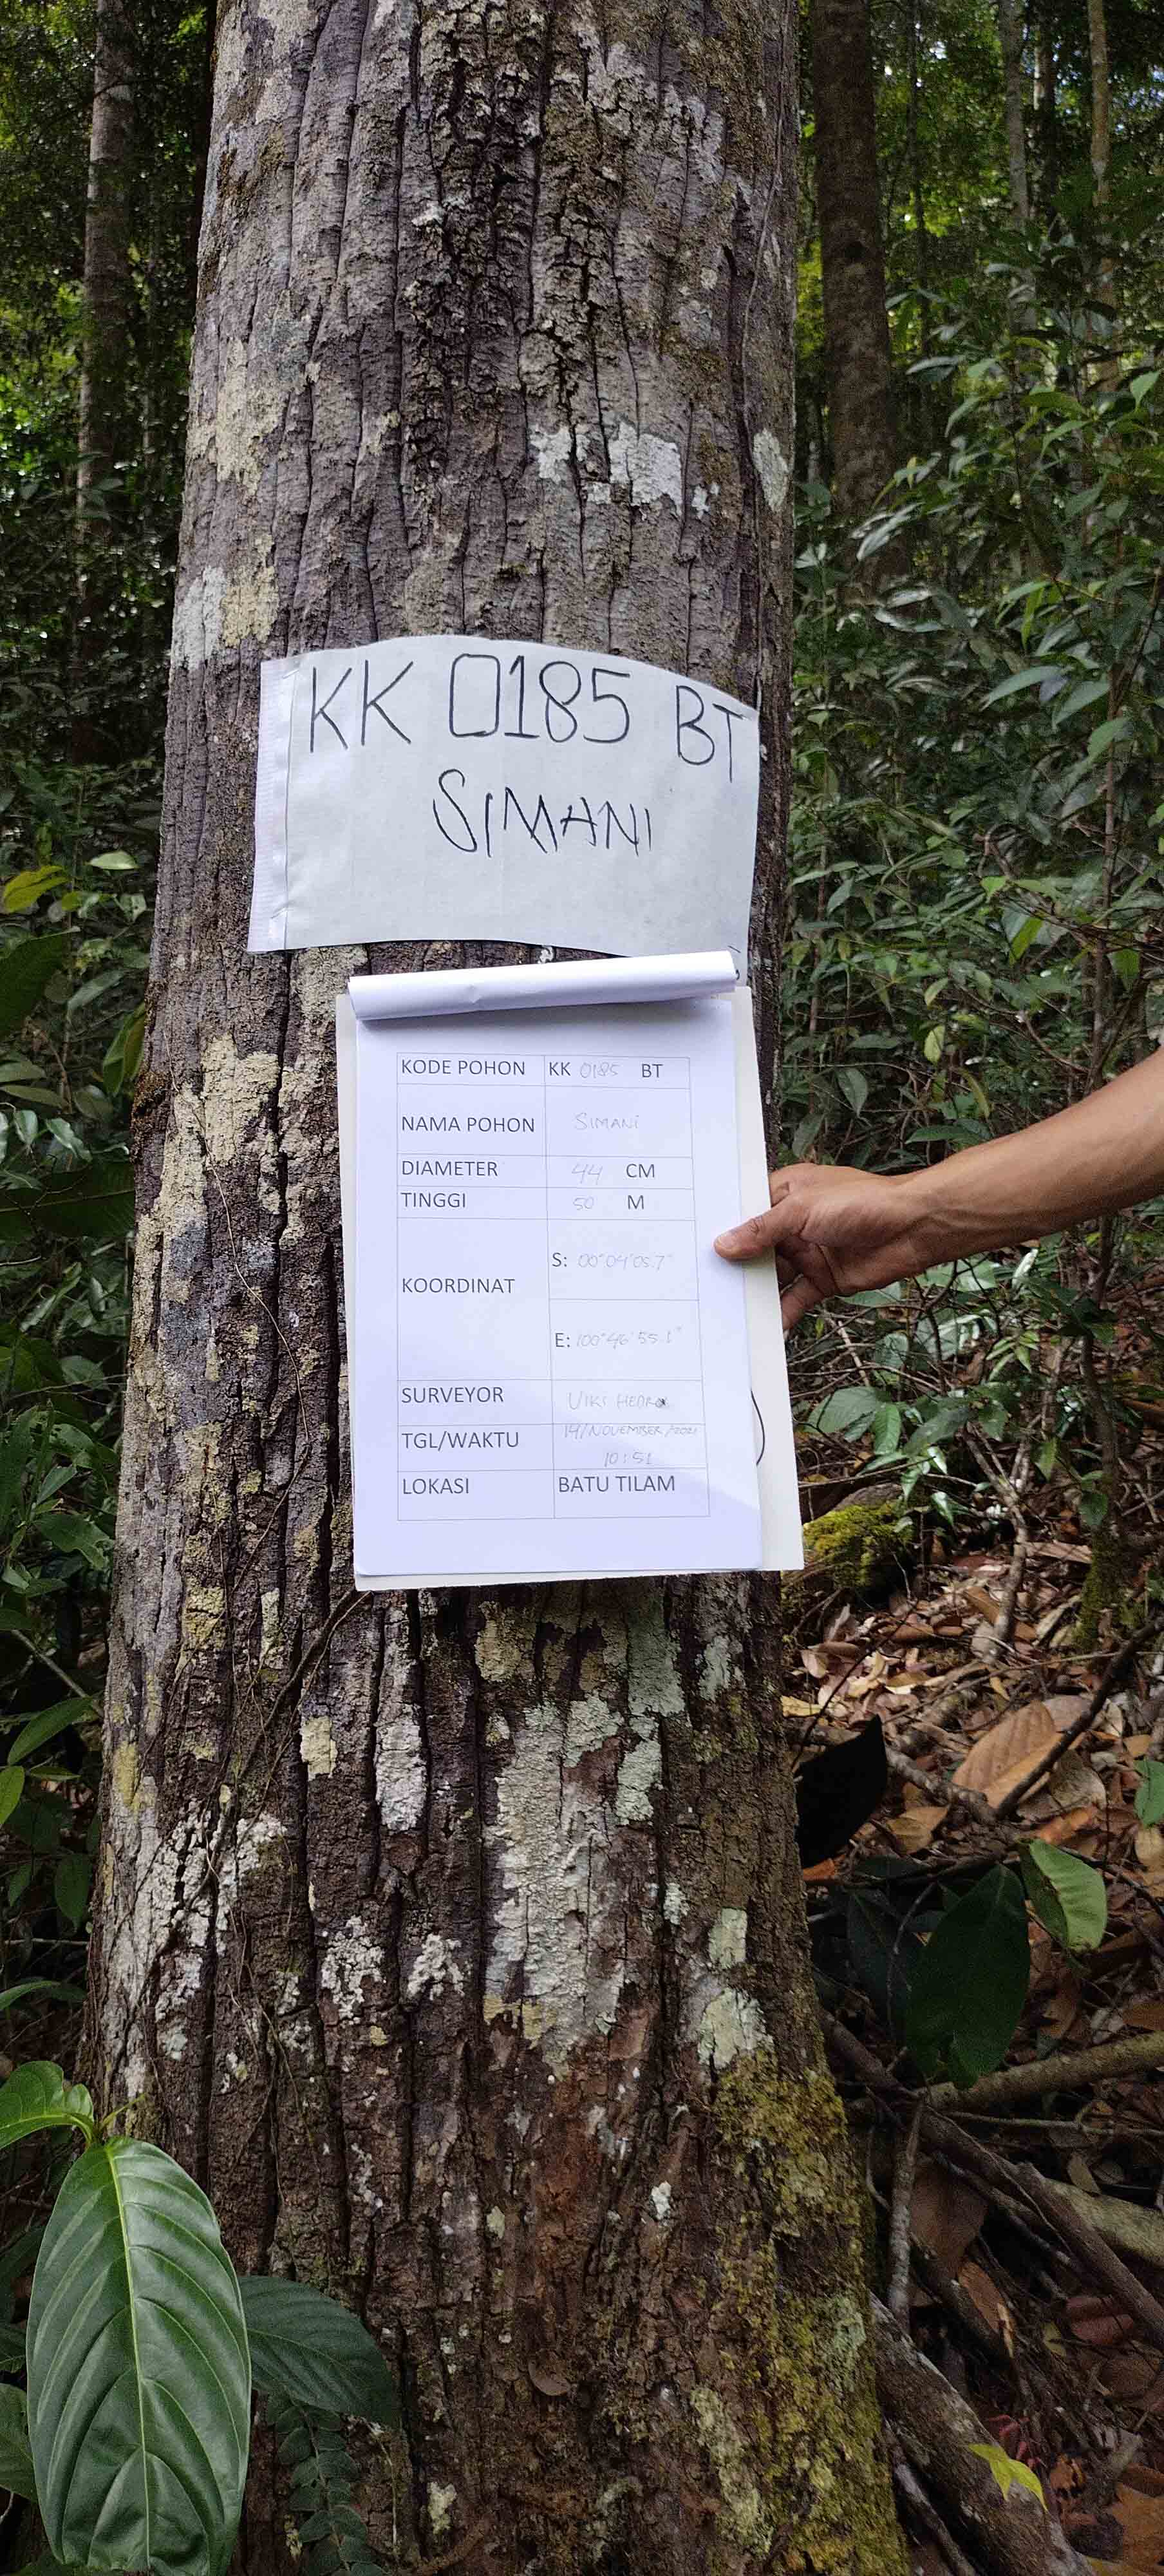 KK 0185 BT
SIMANI
KODE POHON KK 0185 BT
NAMA POHON SIMANI
DIAMETER 44 CM
TINGGI 50 M
KOORDINAT
S: 00°04'05.7"
E: 100°46'55.1"
SURVEYOR VIKI HEDRA
TGL/WAKTU 19/NOVEMBER/2021
10:51
LOKASI BATU TILAM